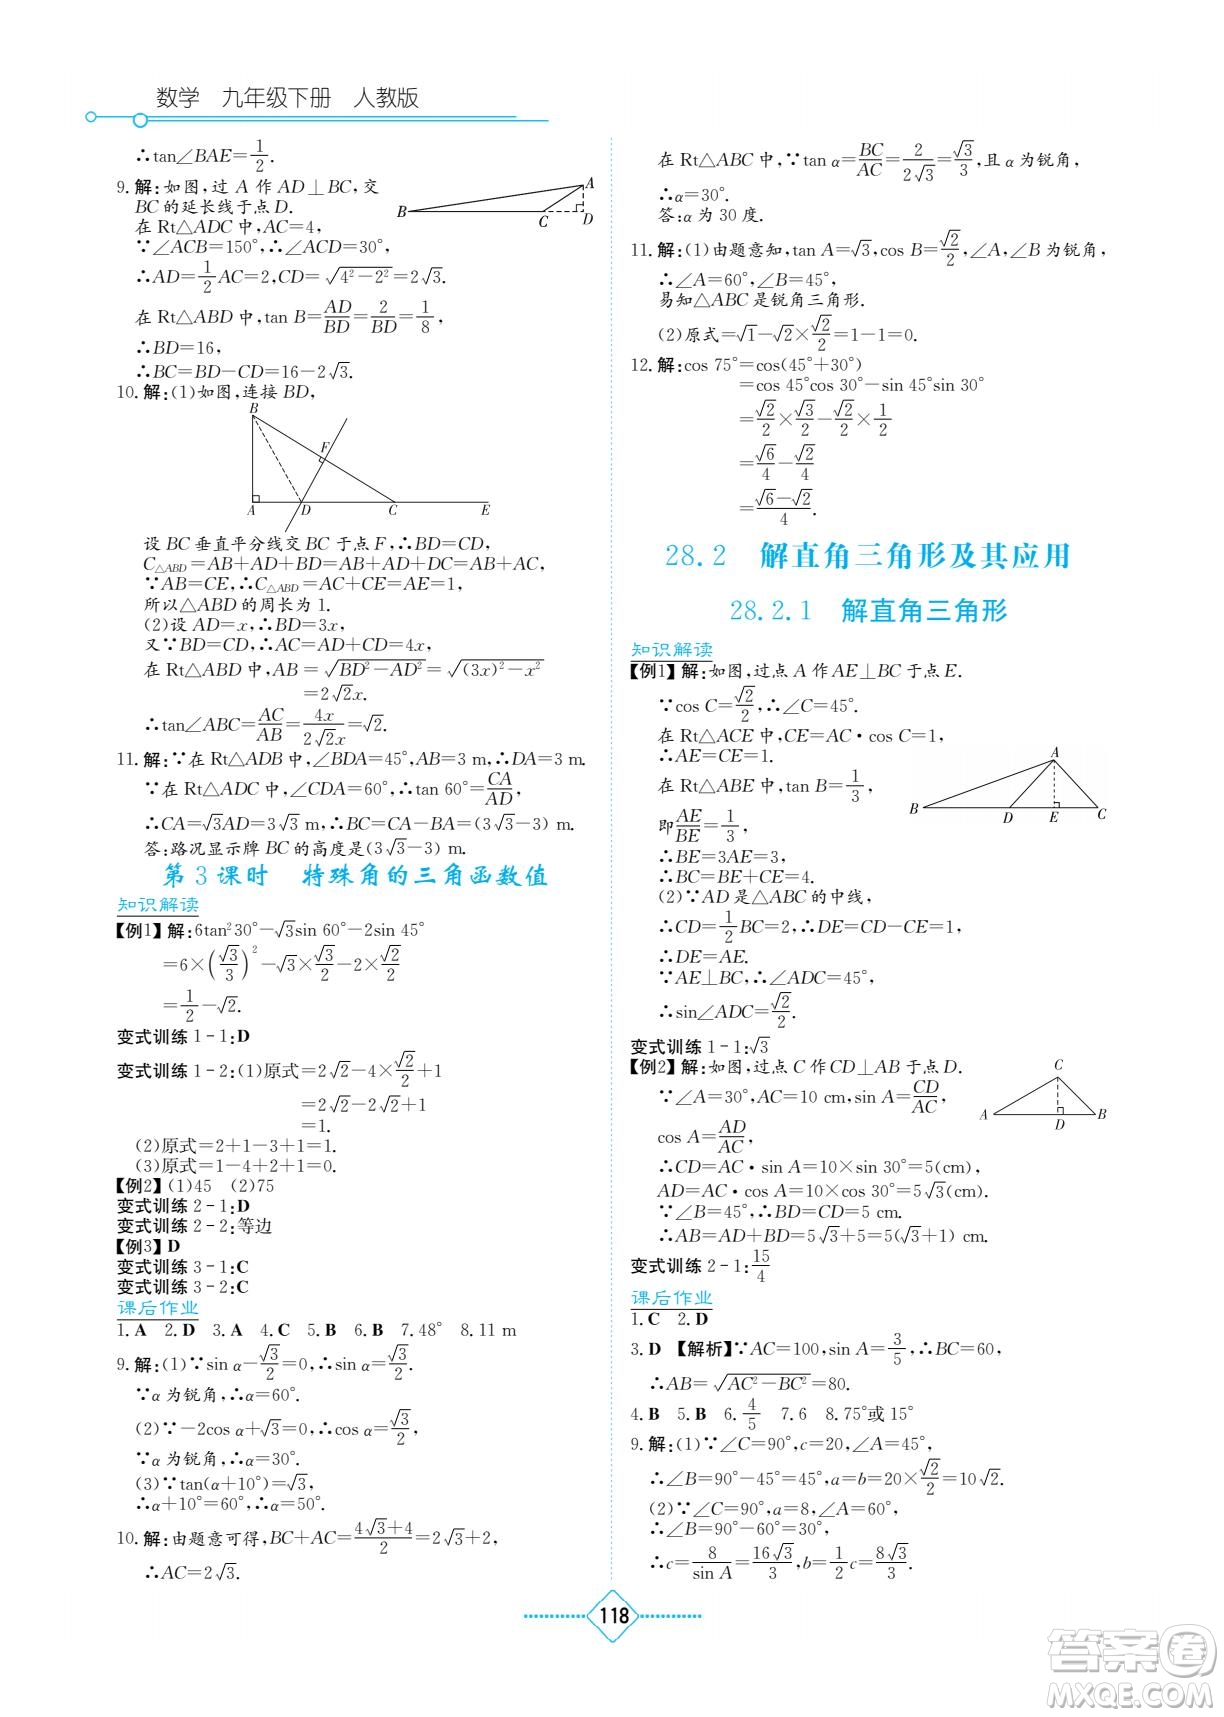 数学　九年级下册　人教版
∴tan∠BAE=1/2.
9. 解:如图,过 A 作 AD⊥BC,交
BC的延长线于点D.
在 Rt△ADC 中,AC=4,
∵∠ACB=150°,∴∠ACD=30°,
∴AD=1/2AC=2,CD=√(4²-2²)=2√3.
在 Rt△ABD 中,tan B=AD/BD=2/BD=1/8,
∴BD=16,
∴BC=BD-CD=16-2√3.
A
B
C
D
10. 解:(1)如图,连接 BD,
B
F
A
D
C
E
设 BC 垂直平分线交 BC 于点 F,∴BD=CD,
C△ABD=AB+AD+BD=AB+AD+DC=AB+AC,
∵AB=CE,∴C△ABD=AC+CE=AE=1,
所以△ABD 的周长为 1.
(2)设 AD=x,∴BD=3x,
又∵BD=CD,∴AC=4x,
在 Rt△ABD 中,AB=√(BD²-AD²)=√((3x)²-x²)
=2√2x.
∴tan∠ABC=AC/AB=4x/(2√2x)=√2.
11. 解:∵在 Rt△ADB 中,∠BDA=45°,AB=3 m,∴DA=3 m.
∵在 Rt△ADC 中,∠CDA=60°,∴tan 60°=CA/AD,
∴CA=√3AD=3√3 m,∴BC=CA-BA=(3√3-3) m.
答:路况显示牌 BC 的高度是(3√3-3) m.
第 3 课时　特殊角的三角函数值
知识解读
【例1】解:6tan²30°-√3sin 60°-2sin 45°
=6×(√3/3)²-√3×√3/2-2×√2/2
=1/2-√2.
变式训练 1-1:D
变式训练 1-2:(1)原式=2√2-4×√2/2+1
=2√2-2√2+1
=1.
(2)原式=2+1-3+1=1.
(3)原式=1-4+2+1=0.
【例2】(1)45　(2)75
变式训练 2-1:D
变式训练 2-2:等边
【例3】D
变式训练 3-1:C
变式训练 3-2:C
课后作业
1. A　2. D　3. A　4. C　5. B　6. B　7. 48°　8. 11 m
9. 解:(1)∵sin α-√3/2=0,∴sin α=√3/2.
∵α 为锐角,∴α=60°.
(2)∵-2cos α+√3=0,∴cos α=√3/2.
∵α 为锐角,∴α=30°.
(3)∵tan(α+10°)=√3,
∴α+10°=60°,∴α=50°.
10. 解:由题意可得,BC+AC=(4√3+4)/2=2√3+2,
∴AC=2√3.
在 Rt△ABC 中,∵tan α=BC/AC=2/(2√3)=√3/3,且 α 为锐角,
∴α=30°.
答:α 为 30 度.
11. 解:(1)由题意知,tan A=√3,cos B=√2/2,∠A,∠B 为锐角,
∴∠A=60°,∠B=45°,
易知△ABC 是锐角三角形.
(2)原式=√1-√2×√2/2=1-1=0.
12. 解:cos 75°=cos(45°+30°)
=cos 45°cos 30°-sin 45°sin 30°
=√2/2×√3/2-√2/2×1/2
=√6/4-√2/4
=(√6-√2)/4.
28.2　解直角三角形及其应用
28.2.1　解直角三角形
知识解读
【例1】解:如图,过点 A 作 AE⊥BC 于点 E.
∵cos C=√2/2,∴∠C=45°.
在 Rt△ACE 中,CE=AC·cos C=1,
∴AE=CE=1.
在 Rt△ABE 中,tan B=1/3,
即AE/BE=1/3,
∴BE=3AE=3.
∴BC=BE+CE=4.
A
B
D
E
C
(2)∵AD 是△ABC 的中线,
∴CD=1/2BC=2,∴DE=CD-CE=1,
∴DE=AE.
∵AE⊥BC,∴∠ADC=45°,
∴sin∠ADC=√2/2.
变式训练 1-1:√3
【例2】解:如图,过点 C 作 CD⊥AB 于点 D.
∵∠A=30°,AC=10 cm,sin A=CD/AC,
cos A=AD/AC,
∴CD=AC·sin A=10×sin 30°=5(cm),
AD=AC·cos A=10×cos 30°=5√3(cm).
∵∠B=45°,∴BD=CD=5 cm.
∴AB=AD+BD=5√3+5=5(√3+1) cm.
C
A
D
B
变式训练 2-1:15/4
课后作业
1. C　2. D
3. D 【解析】∵AC=100,sin A=3/5,∴BC=60,
∴AB=√(AC²-BC²)=80.
4. B　5. B　6. 4/5　7. 6　8. 75°或 15°
9. 解:(1)∵∠C=90°,c=20,∠A=45°,
∴∠B=90°-45°=45°,a=b=20×√2/2=10√2.
(2)∵∠C=90°,a=8,∠A=60°,
∴∠B=90°-60°=30°,
∴c=8/sin A=16√3/3,b=1/2c=8√3/3.
118
答案卷
MXQE.COM